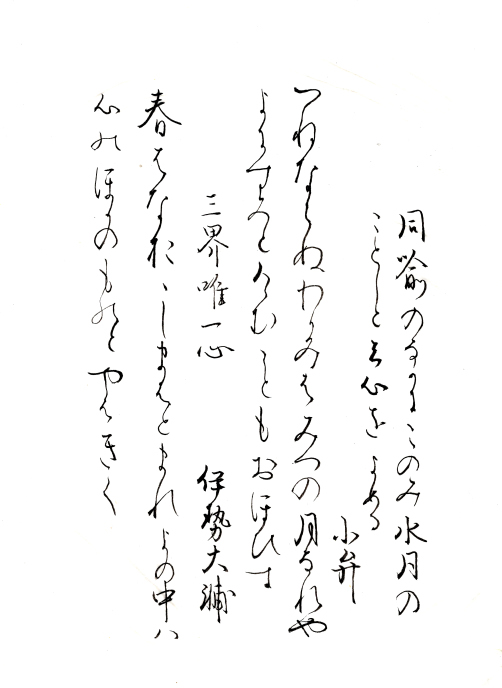 同喩のなかにこのみ水月の
ことしと云心をよめる
小弁
つねならぬわかみはみつの月なれや
よにすみとけむこともおほひす
三界唯一心
伊勢大輔
春はなおゝしまはとまれよの中ハ
心のほかのものとやはきく